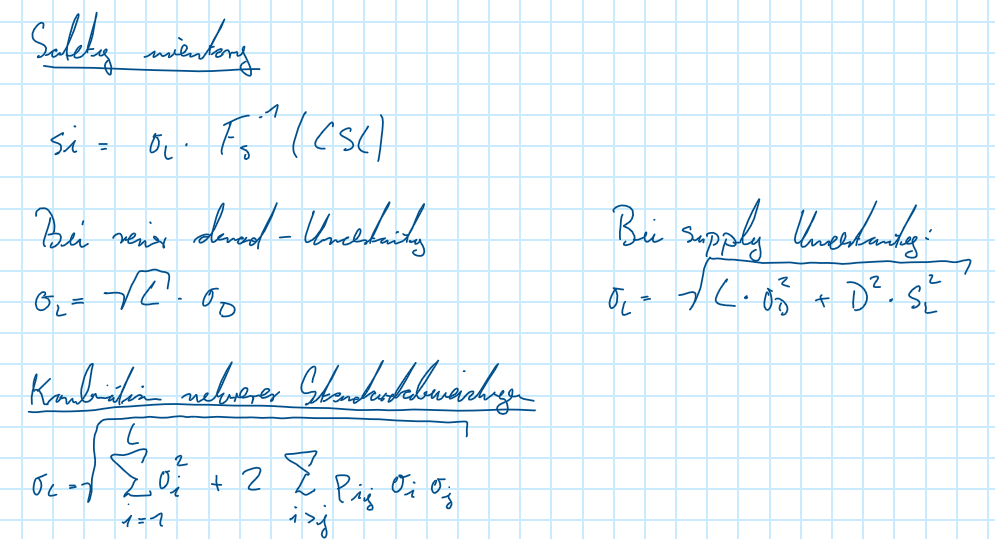 Safety inventory
si = σ_L · F_S^-1 (CSL)
Bei reiner demand-Uncertainty
σ_L = √L · σ_D
Bei supply Uncertainty:
σ_L = √(L · σ_D^2 + D^2 · S_L^2)
Kombination mehrerer Standardabweichungen
σ_L = √(∑_{i=1}^{L} σ_i^2 + 2 ∑_{i>j} ρ_ij σ_i σ_j)